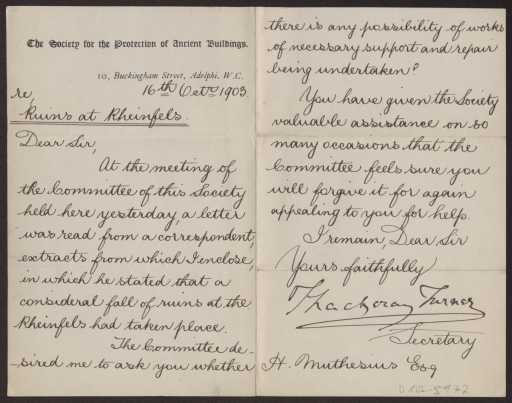 The Society for the Protection of Ancient Buildings.
10, Buckingham Street, Adelphi, W.C.
16th Octr. 1903.
re,
Ruins at Rheinfels.
Dear Sir,
At the meeting of
the Committee of this Society
held here yesterday, a letter
was read from a correspondent,
extracts from which I enclose,
in which he stated that a
consideral fall of ruins at the
Rheinfels had taken place.
The Committee de-
-sired me to ask you whether
there is any possibility of works
of necessary support and repair
being undertaken?
You have given the Society
valuable assistance on so
many occasions that the
Committee feels sure you
will forgive it for again
appealing to you for help.
I remain, Dear Sir
Yours faithfully
Thackeray Turner
Secretary
H. Muthesius Esq